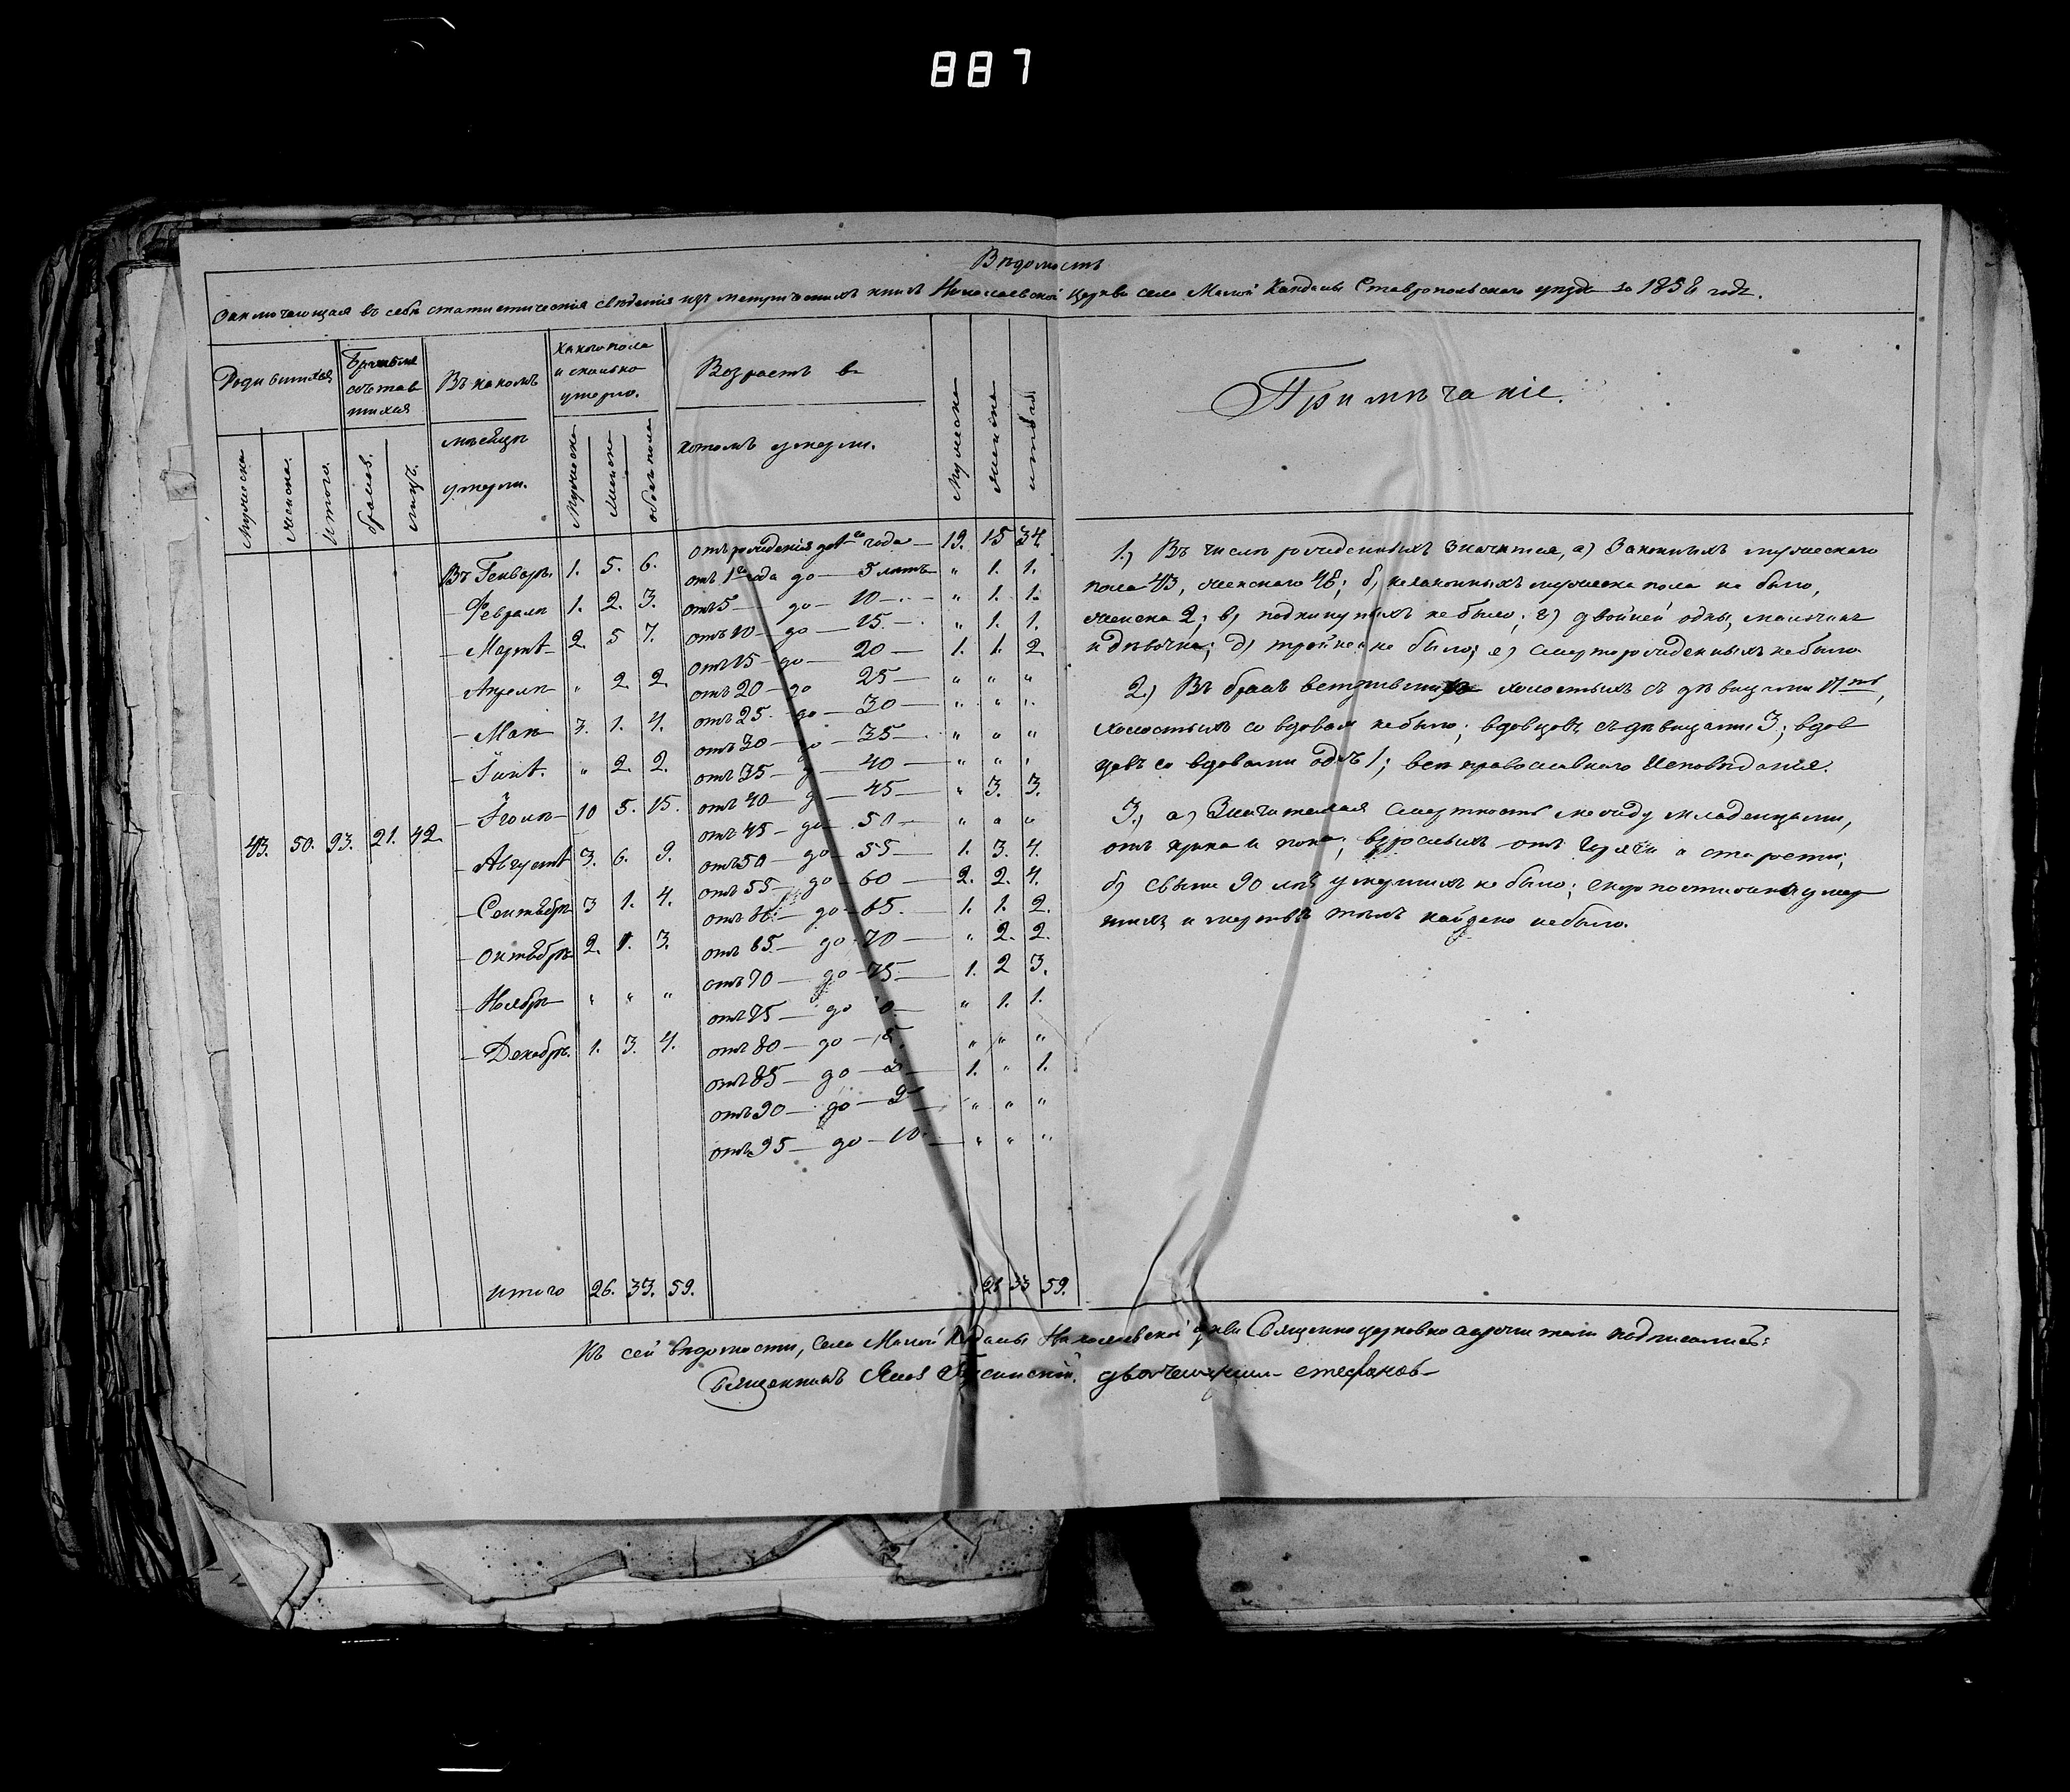 887
Вѣдомость
Заключающая въ себѣ статистическія свѣденія изъ метрическихъ книгъ Николаевской церкви села Малой Кандалы Ставропольскаго уѣзда за 1858 годъ.
Родившихся
Бракомъ сочетавшихся
Въ какомъ мѣсяцѣ умерли.
Какого пола и сколько умерло.
Возрастъ въ которомъ умерли.
Примѣчаніе.
Мужеска Женска. Итого. браков. лицъ. Мужеска Женска обоего пола Мужеска Женска итого
43. 50. 93. 21. 42.
Въ Генварѣ. 1. 5. 6.
– Февралѣ 1. 2. 3.
– Мартѣ 2. 5 7.
– Апрелѣ " 2. 2.
– Маѣ 3. 1. 4.
– Іюнѣ. " 2. 2.
– Іюлѣ 10 5. 15.
– Августѣ 3. 6. 9.
– Сентябрѣ 3 1. 4.
– Октябрѣ 2. 1. 3.
– Ноябрѣ " " "
– Декабрѣ. 1. 3. 4.
итого 26. 33. 59.
отъ рожденія до 1го года 19. 15 34.
отъ 1го года до 5 лѣтъ " 1. 1.
отъ 5 до 10 " 1. 1.
отъ 10 до 15 " 1. 1.
отъ 15 до 20 1. 1. 2.
отъ 20 до 25 " " "
отъ 25 до 30 " " "
отъ 30 до 35 " " "
отъ 35 до 40 " " "
отъ 40 до 45 " 3. 3.
отъ 45 до 50 " " "
отъ 50 до 55 1. 3. 4.
отъ 55 до 60 2. 2. 4.
отъ 60 до 65. 1. 1. 2.
отъ 65 до 70 " 2. 2.
отъ 70 до 75 1. 2 3.
отъ 75 до " 1. 1.
отъ 80 до " " "
отъ 85 до 1. " 1.
отъ 90 до " " "
отъ 95 до " " "
26 33 59.
1.) Въ числѣ рожденныхъ значится, а) Законныхъ мужескаго
пола 43, женскаго 48; б) незаконныхъ мужеска пола не было,
женска 2; в) подкинутыхъ не было; г) двойней одны, мальчикъ
и дѣвочка; д) тройней не было; е) смерторожденныхъ не было
2.) Въ бракъ вступившихъ холостыхъ съ дѣвицами 17ть,
холостыхъ со вдовам не было; вдовцовъ съ дѣвицами 3; вдов
цовъ со вдовами 1; всѣ православнаго Исповѣданія.
3.) а) Значительная смертность между младенцами,
отъ крика и поноса; взрослыхъ отъ горячки и старости;
б) свыше 90 лѣтъ умершихъ не было; скоропостижно умер
шихъ и мертвыхъ тѣлъ найдено не было.
Къ сей вѣдомости, села Малой Кандалы Николаевской церкви Священноцерковнослужители подписались:
Священникъ Яковъ